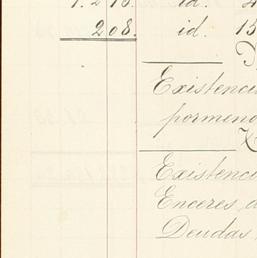 208. id. 15
Existenci
pormeno
Existenci
Enceres d
Deudas